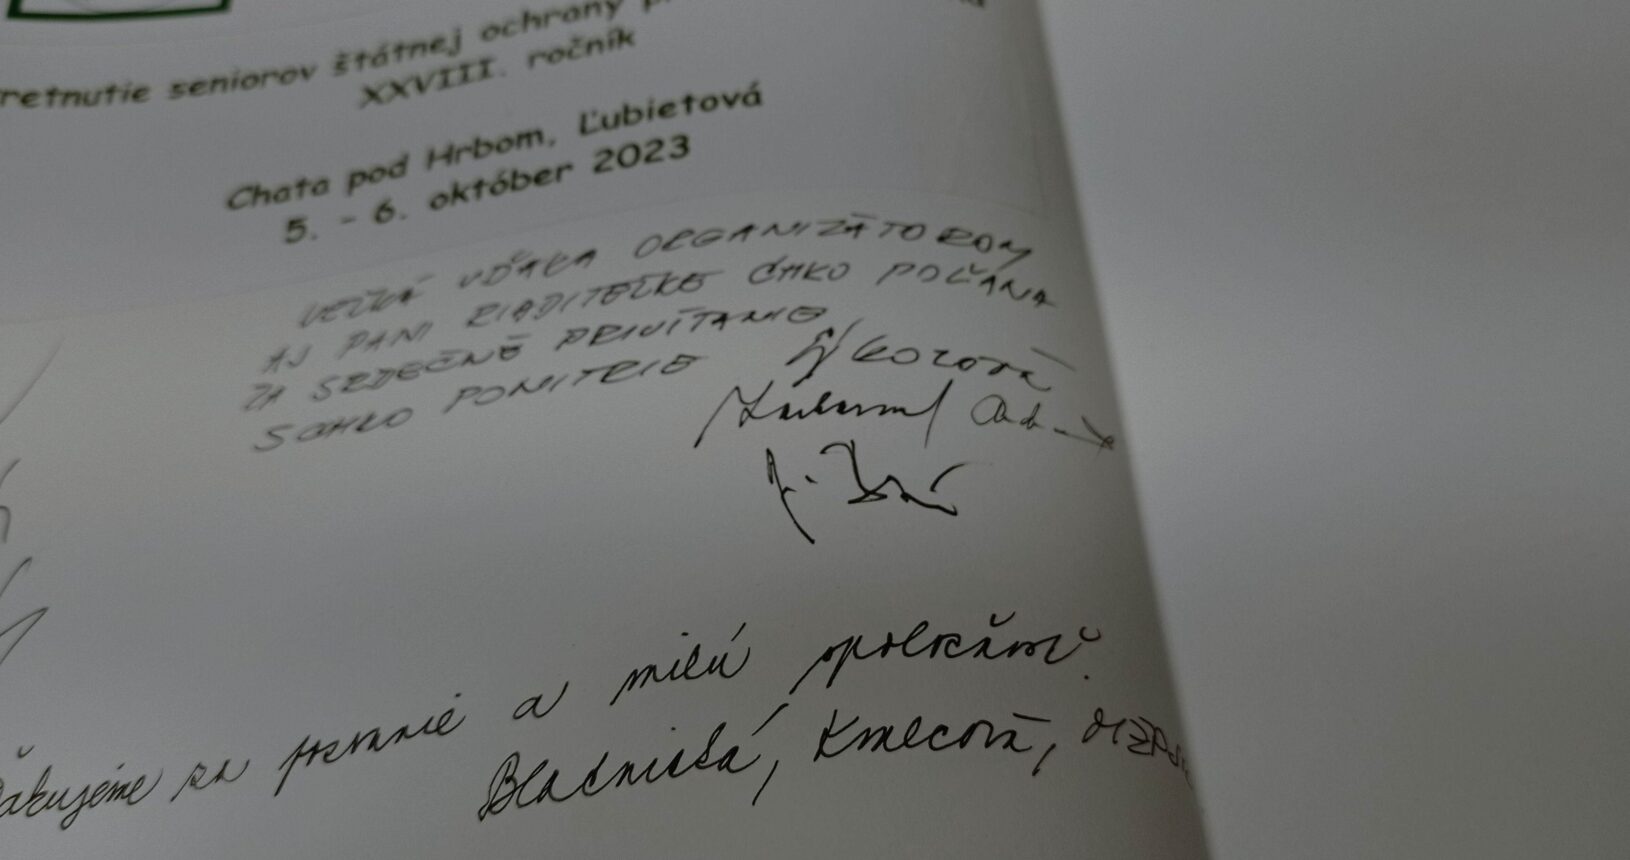 retnutie seniorov štátnej ochrany
XXVIII. ročník
Chata pod Hrbom, Ľubietová
5. - 6. október 2023
VEĽKÁ VĎAKA ORGANIZÁTOROM
AJ PANI RIADITEĽKE CHKO POĽANA
ZA SRDEČNÉ PRIVÍTANIE
SCHKO PONITRIE
ďakujeme za pozvanie a milú spoločnosť.
Kmecová,